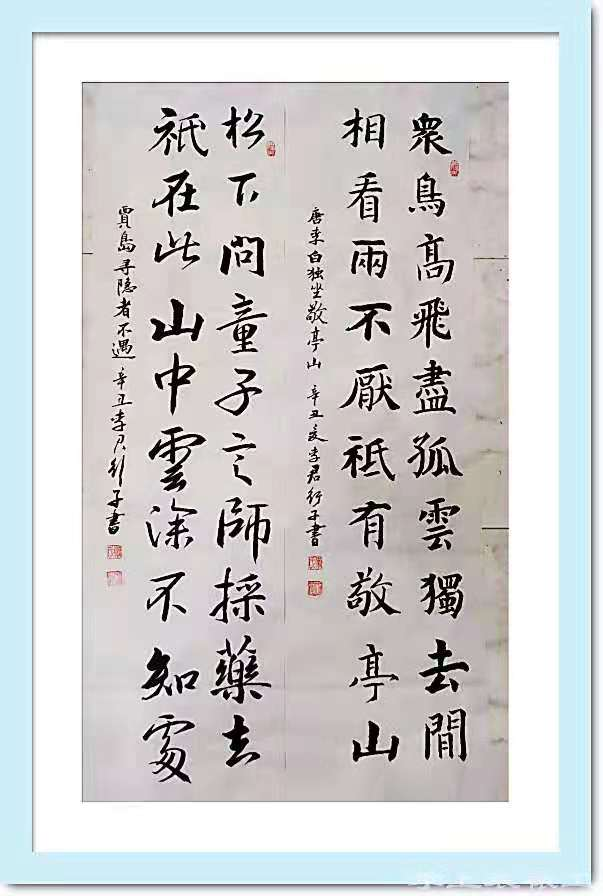 衆鳥髙飛盡孤雲獨去閒
相看兩不厭祇有敬亭山
唐李白独坐敬亭山 辛丑夏李君行子書
松下問童子言師採藥去
祇在此山中雲深不知處
賈島寻隐者不遇 辛丑李君行子書